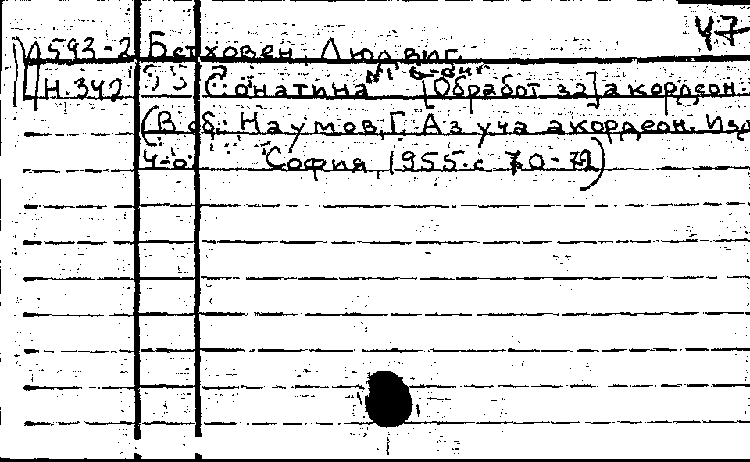 47
И593-2 Бетховен, Людвиг.
Н.342 Сонатина [Обработ за] акордеон.
(В сб.: Наумов, Г. Аз уча акордеон. Изд
ч-о. София, 1955. с 70-72)